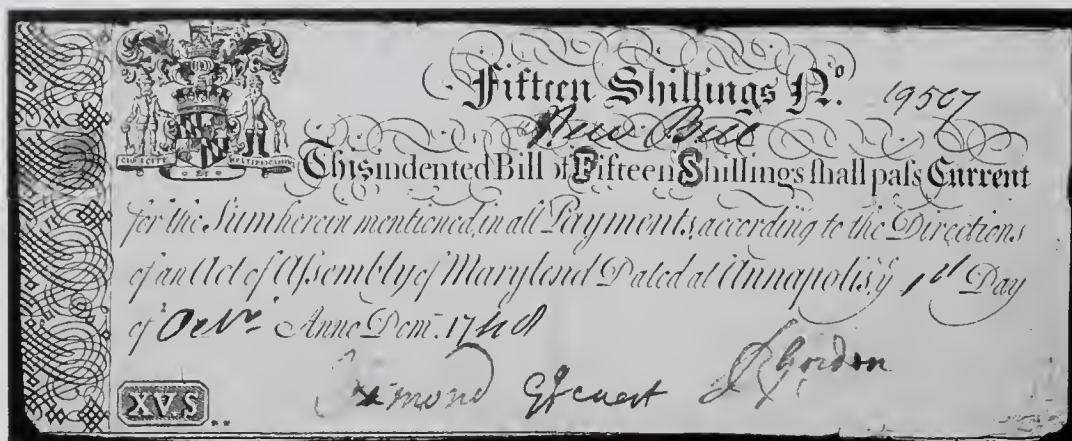 Fifteen Shillings N.º 19507
New Bill
CRESCITE ET MULTIPLICAMINI
This indented Bill of Fifteen Shillings shall pass Current
for the Sum herein mentioned, in all Payments, according to the Directions
of an Act of Assembly of Maryland Dated at Annapolis, yᵉ 1st Day
of Octr. Anno Dom. 1748
G Steuart R Gordon
XVS